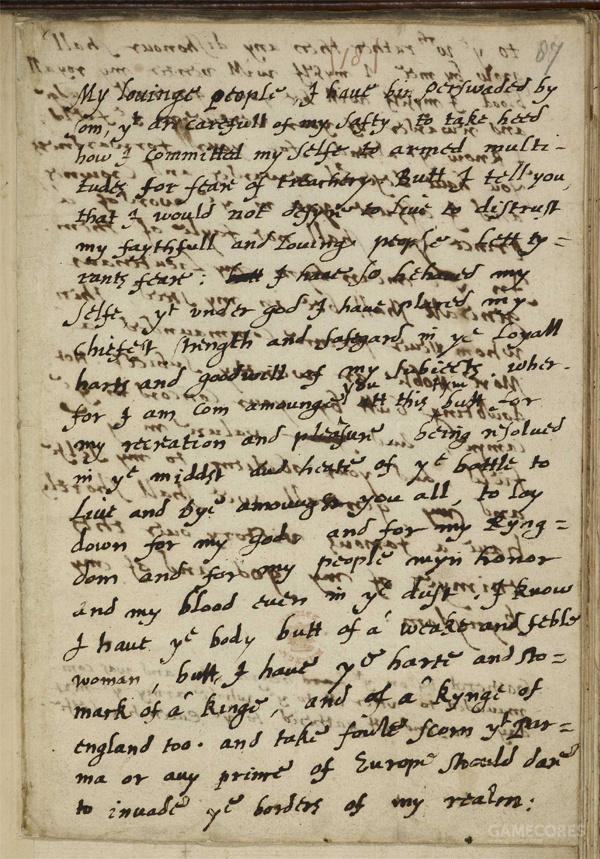 87
My louinge people I haue bin perswaded by
som, yt ar carefull of my safty to take heed
how I committed my selfe to armed multi-
tudes for feare of treachery. Butt I tell you,
that I would not desyre to liue to distrust
my faythfull and louinge people. Lett ty=
rants feare: I haue so behaued my
selfe yt vnder god I haue placed my
chiefest strength and safgard in ye Loyall
harts and goodwill of my subiects. wher-
for I am com amounge you att this butt for
my recreation and pleasure being resolued
in ye middst and heate of ye battle to
Liue and Dye amoungst you all, to lay
down for my god and for my kyng=
dom and for my people myn honor
and my blood euen in ye dust. I know
I haue ye body butt of a weake and feble
woman, butt I haue ye harte and sto=
mark of a kinge, and of a kynge of
england too. and take foule scorn yt Par=
ma or any prince of Europe should dare
to inuade ye borders of my realm:
GAMECORES